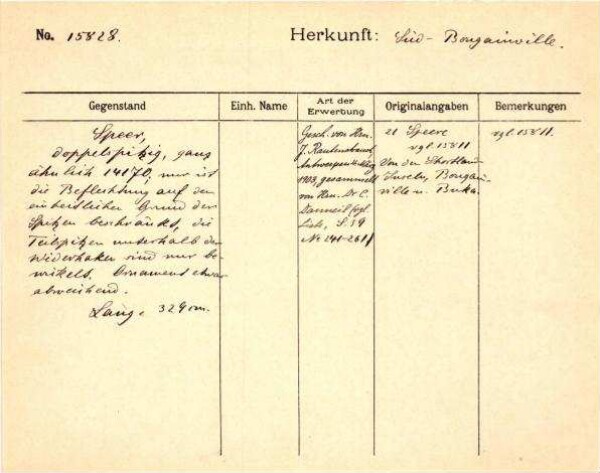 No. 15828.
Herkunft: Süd-Bougainville.
Gegenstand
Einh. Name
Art der Erwerbung
Originalangaben
Bemerkungen
Speer,
doppelspitzig, ganz
ähnlich 14170; nur ist
die Beflechtung auf den
einheitlichen Grund der
Spitzen beschränkt, die
Teilspitzen unterhalb der
Widerhaken sind nur be-
wickelt. Ornament etwas
abweichend.
Lang. 329 cm.
Gesch. von Herrn
J. Rautenstrauch
Antwerpen
1903, gesammelt
von Herrn Dr. C.
Danneil (vgl.
Liste, S. 19
No 241-261)
21 Speere
vgl. 15811
Von den Shortland
Inseln, Bougain-
ville u. Buka.
vgl. 15811.